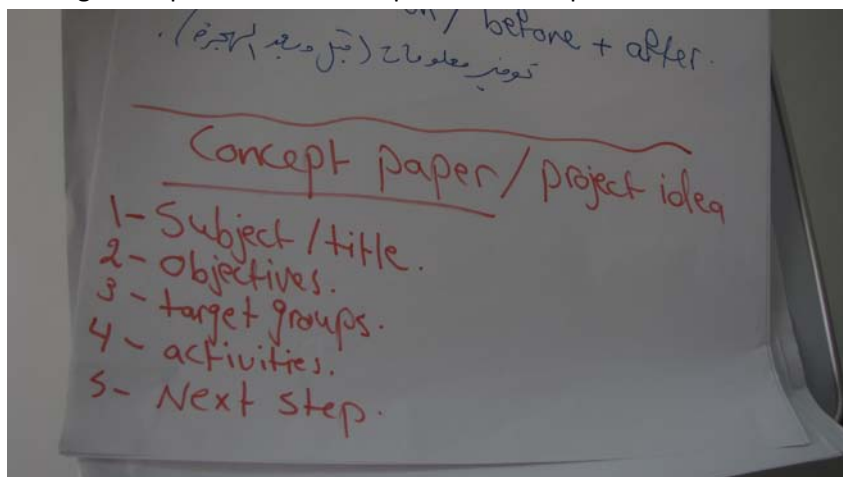 / before + after.
توفير معلومات (قبل وبعد الهجرة).
Concept paper / project idea
1- Subject / title.
2- Objectives.
3- target groups.
4- activities.
5- Next step.